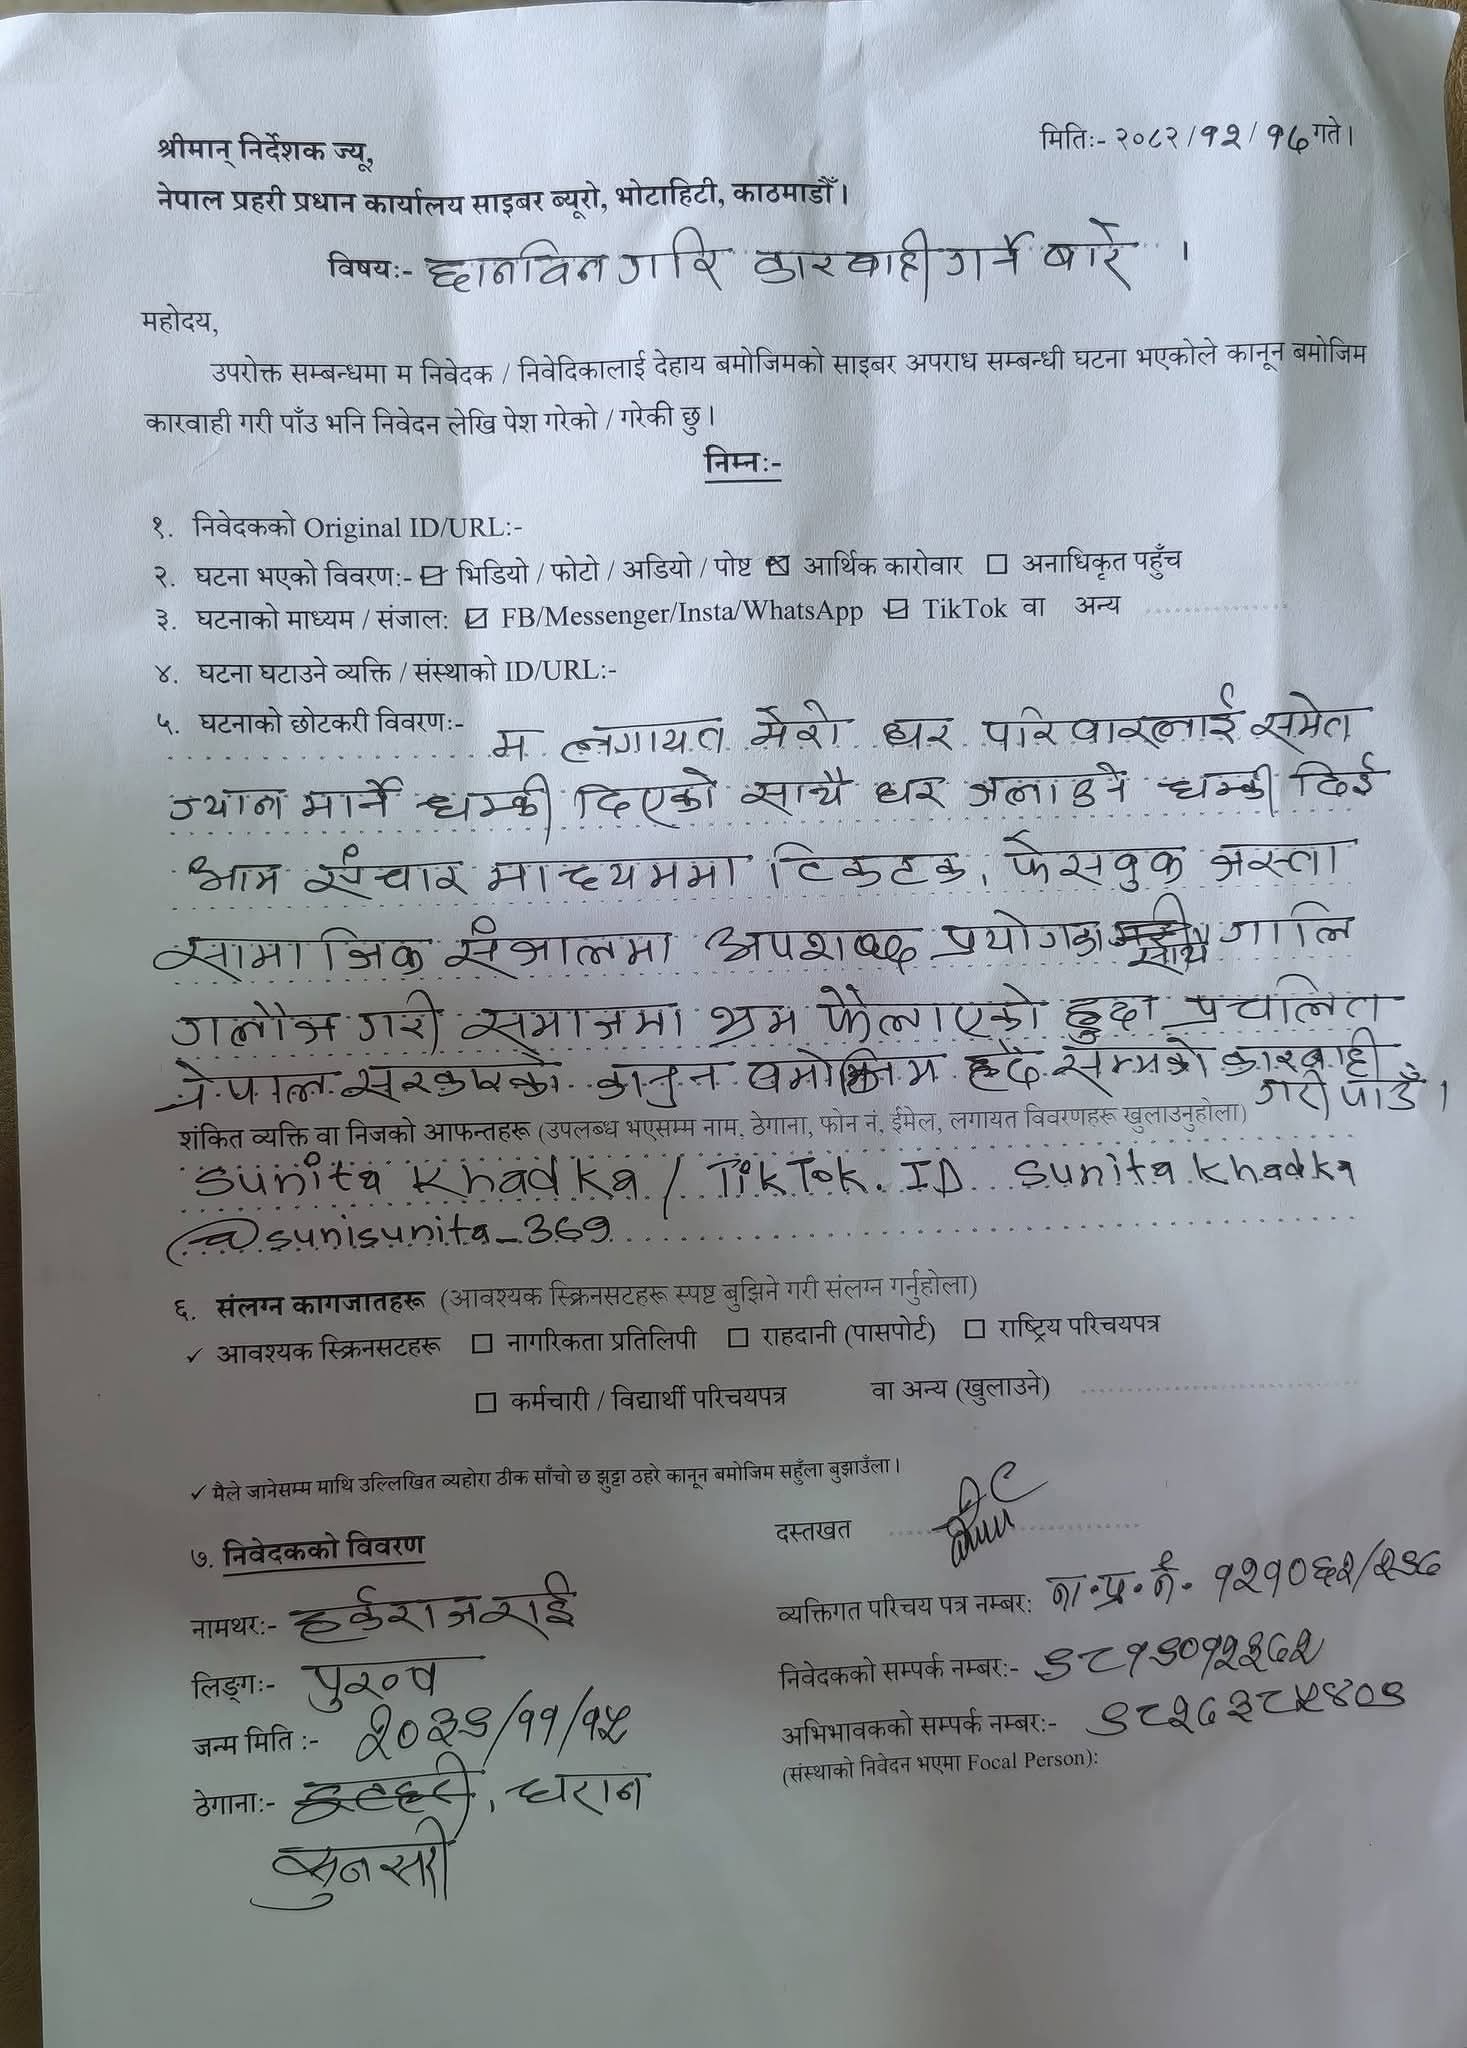 श्रीमान् निर्देशक ज्यू,
मितिः- २०८२/१२/१६ गते।
नेपाल प्रहरी प्रधान कार्यालय साइबर ब्यूरो, भोटाहिटी, काठमाडौँ।
विषयः- छानविन गरि कारवाही गर्ने बारे ।
महोदय,
उपरोक्त सम्बन्धमा म निवेदक / निवेदिकालाई देहाय बमोजिमको साइबर अपराध सम्बन्धी घटना भएकोले कानून बमोजिम
कारवाही गरी पाँउ भनि निवेदन लेखि पेश गरेको / गरेकी छु।
निम्नः-
१. निवेदकको Original ID/URL:-
२. घटना भएको विवरणः- ☑ भिडियो / फोटो / अडियो / पोष्ट ☒ आर्थिक कारोवार ☐ अनाधिकृत पहुँच
३. घटनाको माध्यम / संजाल: ☑ FB/Messenger/Insta/WhatsApp ☑ TikTok वा अन्य
४. घटना घटाउने व्यक्ति / संस्थाको ID/URL:-
५. घटनाको छोटकरी विवरणः- म लगायत मेरो घर परिवारलाई समेत
ज्यान मार्ने धम्की दिएको साथै घर जलाउने धम्की दिई
आम संचार माध्यममा टिकटक, फेसवुक जस्ता
सामाजिक संजालमा अपशब्द प्रयोगका साथै गालि
गलौज गरी समाजमा भ्रम फैलाएको हुदा प्रचलित
नेपाल सरकारको कानुन बमोजिम हदै सम्मको कारवाही
गरी पाउँ।
शंकित व्यक्ति वा निजको आफन्तहरू (उपलब्ध भएसम्म नाम, ठेगाना, फोन नं, ईमेल, लगायत विवरणहरू खुलाउनुहोला)
Sunita Khadka / TikTok. ID Sunita Khadka
@sunisunita_369
६. संलग्न कागजातहरू (आवश्यक स्क्रिनसटहरू स्पष्ट बुझिने गरी संलग्न गर्नुहोला)
✓ आवश्यक स्क्रिनसटहरू ☐ नागरिकता प्रतिलिपी ☐ राहदानी (पासपोर्ट) ☐ राष्ट्रिय परिचयपत्र
☐ कर्मचारी / विद्यार्थी परिचयपत्र वा अन्य (खुलाउने)
✓ मैले जानेसम्म माथि उल्लिखित व्यहोरा ठीक साँचो छ झुठ्ठा ठहरे कानून बमोजिम सहुँला बुझाउँला।
दस्तखत
७. निवेदकको विवरण
नामथरः- हर्कराज राई
व्यक्तिगत परिचय पत्र नम्बर: ना.प्र.नं. १२१०६२/२९६
लिङ्गः- पुरुष
निवेदकको सम्पर्क नम्बरः- ९८१९०१२३६२
जन्म मिति :- २०३९/११/१५
अभिभावकको सम्पर्क नम्बरः- ९८२६३८५४०९
(संस्थाको निवेदन भएमा Focal Person):
ठेगानाः- इटहरी, धरान
सुनसरी